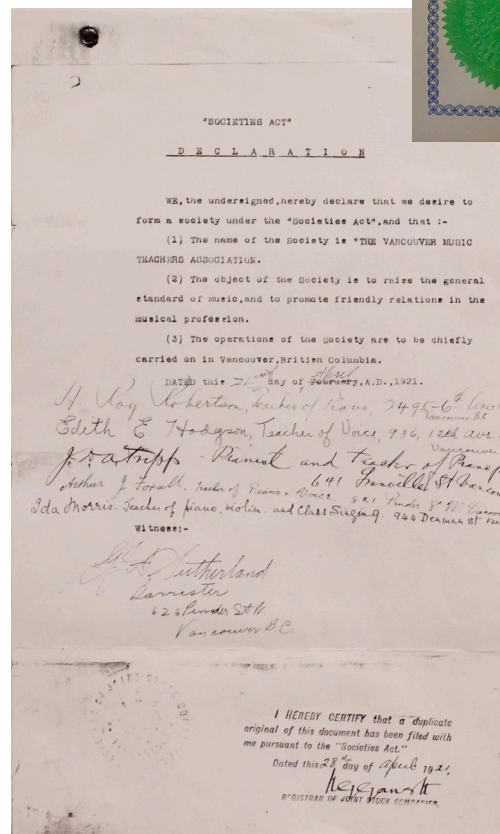 "SOCIETIES ACT"
DECLARATION
WE, the undersigned, hereby declare that we desire to
form a society under the "Societies Act", and that :-
(1) The name of the Society is "THE VANCOUVER MUSIC
TEACHERS ASSOCIATION.
(2) The object of the Society is to raise the general
standard of music, and to promote friendly relations in the
musical profession.
(3) The operations of the Society are to be chiefly
carried on in Vancouver, British Columbia.
April
DATED this day of February, A.D., 1921.
H. Roy Robertson, Teacher of Piano, 2495-6th Ave
Vancouver BC
Edith E Hodgson, Teacher of Voice, 936, 12th Ave.
Vancouver
Pianist and teacher of Piano
641 Granville St Vancouver
Arthur J. Teacher of Piano & Voice 821 Pender St W.
Ida Morris. Teacher of piano, violin. and Class Singing. 944 Denman St Van
Witness:-
Sutherland
Barrister
626 Pender St W
Vancouver B.C.
I HEREBY CERTIFY that a duplicate
original of this document has been filed with
me pursuant to the "Societies Act."
Dated this 28th day of April 1921.
REGISTRAR OF JOINT STOCK COMPANIES.